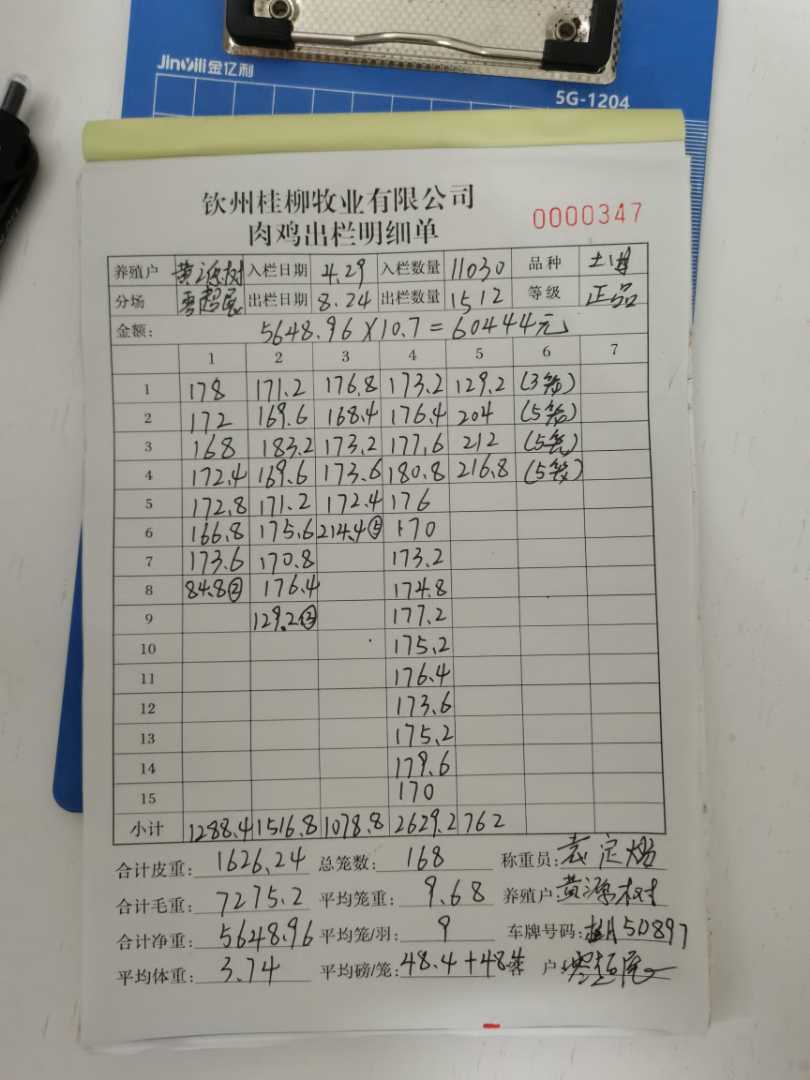 Jinyili金亿利
5G-1204
钦州桂柳牧业有限公司
0000347
肉鸡出栏明细单
养殖户 黄源树 入栏日期 4.29 入栏数量 11030 品种
分场 出栏日期 8.24 出栏数量 1512 等级 正品
金额: 5648.96×10.7=60444元
1 2 3 4 5 6 7
1 178 171.2 176.8 173.2 129.2 (3笼)
2 172 169.6 168.4 176.4 204 (5笼)
3 168 183.2 173.2 177.6 212 (5笼)
4 172.4 169.6 173.6 180.8 216.8 (5笼)
5 172.8 171.2 172.4 176
6 166.8 175.6 214.4⑤ 170
7 173.6 170.8 173.2
8 84.8② 176.4 174.8
9 129.2③ 177.2
10 175.2
11 176.4
12 173.6
13 175.2
14 179.6
15 170
小计 1288.4 1516.8 1078.8 2629.2 762
合计皮重: 1626.24 总笼数: 168 称重员: 定
合计毛重: 7275.2 平均笼重: 9.68 养殖户 黄源树
合计净重: 5648.96 平均笼/羽: 9 车牌号码: 50897
平均体重: 3.74 平均磅/笼: 48.4+48 户: